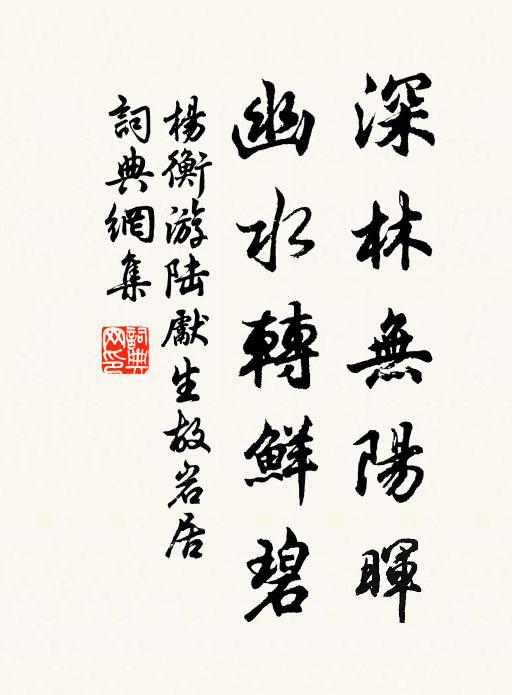 深林無陽暉
幽水轉鮮碧
楊衡游陸獻生故岩居
詞典網集
詞典網印